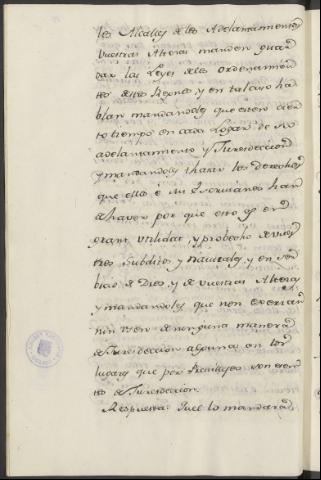 los Alcaldes de los Adelantamientos
vuestras Altezas manden guar
dar las Leyes de los ordenamien
tos destos Reynos, y en tal caso ha
blan mandandoles que esten cier
to tiempo en cada Logar de su
adelantamiento y Jurisdiccion
y mandandoles thasar los derechos
que ellos é sus Escrivanos han
de haver por que esto es en
grant utilidat, y probecho de vues
tros Subditos y naturales, y en ser
bicio de Dios, y de vuestras Altezas
y mandandoles que non exerzan
nin usen de ninguna manera
de Jurisdiccion alguna en los
lugares que por Privillejos son esen
tos de Jurisdiccion.
Respuesta: Quel lo mandaran